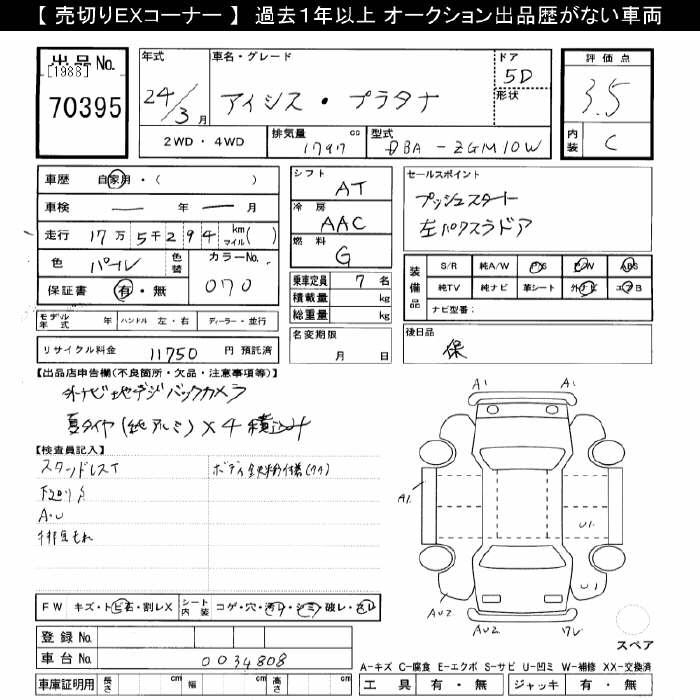 【 売切りEXコーナー 】 過去1年以上 オークション出品歴がない車両
出品No.
[1988]
70395
年式
24/3月
車名・グレード
アイシス・プラタナ
ドア
5D
形状
評価点
3.5
内装
C
2WD・4WD
排気量 cc
1797
型式
DBA-ZGM10W
車歴 自家用・( )
車検 ― 年 ― 月
走行 17万5千294 km マイル( )
色 パール 色替 カラーNo. 070
保証書 有・無
モデル年式 年 ハンドル 左・右 ディーラー・並行
リサイクル料金 11750 円 預託済
シフト AT
冷房 AAC
燃料 G
乗車定員 7 名
積載量 kg
総重量 kg
名変期限
月 日
セールスポイント
プッシュスタート
左パワスラドア
装備品
S/R 純A/W P/S P/W ABS
純TV 純ナビ 革シート 外ナビ エアB
ナビ型番:
後日品
保
【出品店申告欄(不良箇所・欠品・注意事項等)】
外ナビ地デジバックカメラ
夏タイヤ(純アルミ)×4積込み
【検査員記入】
スタッドレスT
下廻りS
A・U
排気もれ
FW キズ・トビ石・割レX シート内装 コゲ・穴・汚レ・シミ・破レ・スレ
登録No.
車台No. 0034808
車庫証明用 長さ cm 幅 cm 高さ cm
A1
A1
A1
U1
U1
AU2
AU2
スペア
A-キズ C-腐食 E-エクボ S-サビ U-凹ミ W-補修 XX-交換済
工具 有・無 ジャッキ 有・無